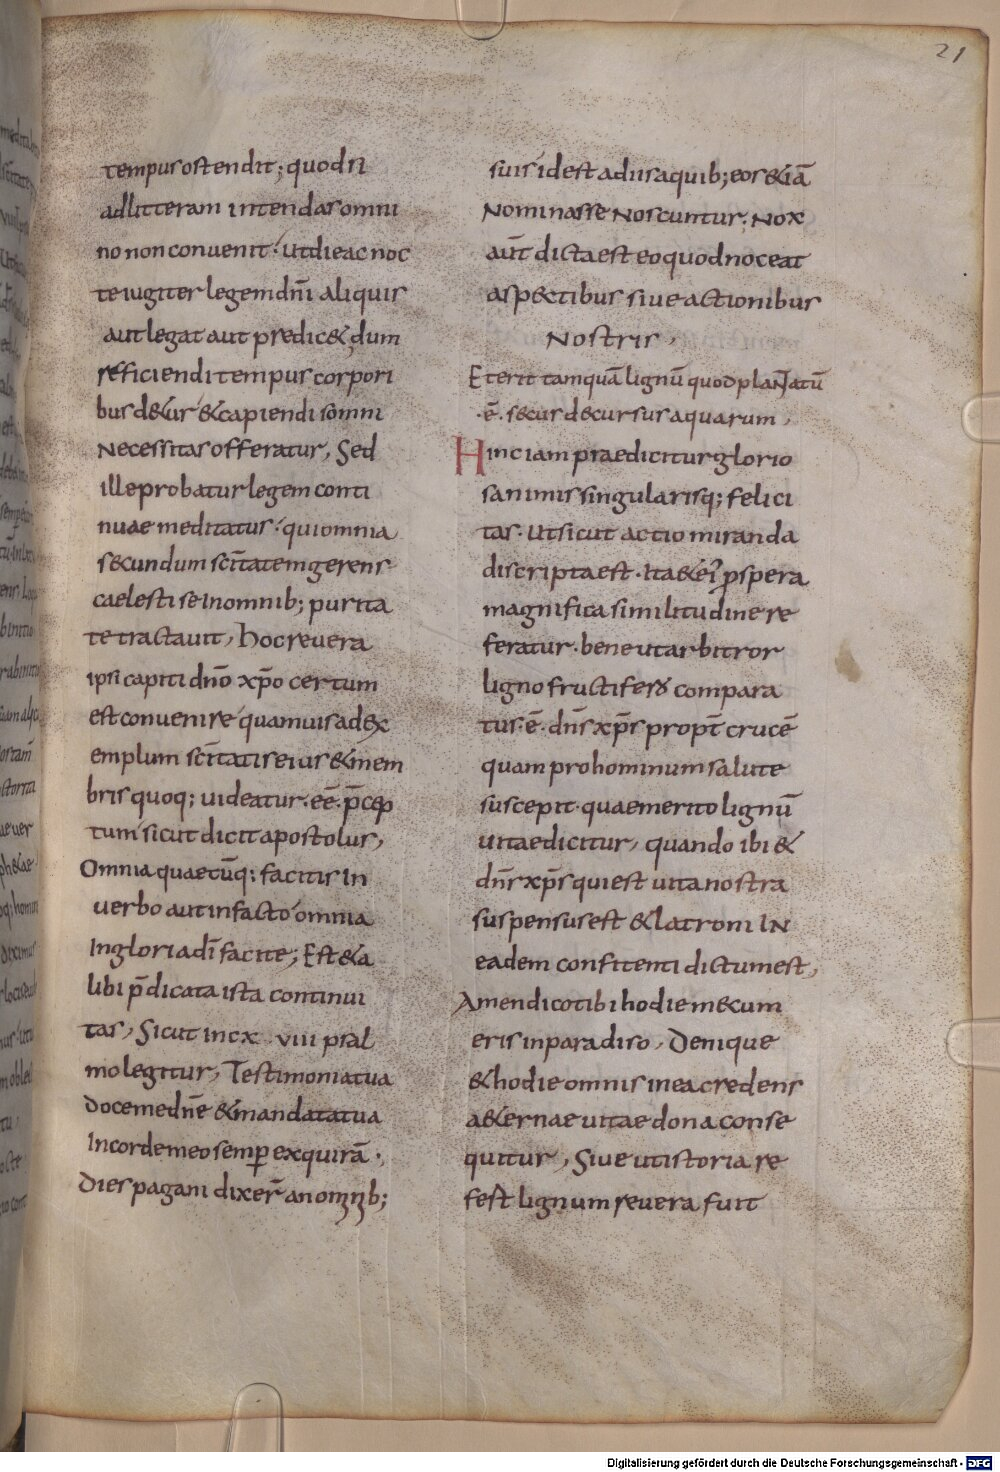 21
tempus ostendit; quod si
ad litteram intendas omni
no non conuenit· ut die ac noc
te iugiter legem dn̄i aliquis
aut legat aut predic& dum
reficiendi tempus corpori
bus d&ur & capiendi somni
Necessitas offeratur, Sed
ille probatur legem conti
nuae meditatus· qui omnia
s&undum sc̄itatem gerens
caelesti se In omnib; purita
te tractauit, hoc reuera
ipsi capiti dn̄o xp̄o certum
est conuenire quamuis ad ex
emplum sc̄itatis eius & mem
bris quoq; uideatur· eē· p̄cep
tum sicut dicit apostolus,
Omnia quaecūq; facitis In
uerbo aut in facto omnia
In gloria dī facite; Est & a
libi p̄dicata ista continui
tas, Sicut in cx viii psal
mo legitur, Testimonia tua
doce me dn̄e & mandata tua
In corde meo semp̱ exquirā·
dies pagani dixer̄ a
suis id est a diis a quib; eos &iā
Nominasse Noscuntur; Nox
aūt dicta est eo quod noceat
asp&tibus siue actionibus
Nostris,
Et erit tamquā lignū quod plantatū
·ē· secus decursus aquarum,
Hinc iam praedicitur glorio
sa nimis singularisq; felici
tas· ut sicut actio miranda
discripta est· Ita & ei p̱spera
magnifica similitudine re
feratur· bene ut arbitror
ligno fructifero compara
tus· ē· dn̄s xp̄s propt̄ crucē
quam pro hominum salute
suscepit· quae merito lignū
uitae dicitur, quando ibi &
dn̄s xp̄s qui est uita nostra
suspensus est & latroni IN
eadem confitenti dictum est,
Amen dico tibi hodie mecum
eris in paradiso, Denique
& hodie omnis in ea credens
a&ernae uitae dona conse
quitur, Siue ut istoria re
fert lignum reuera fuit
Digitalisierung gefördert durch die Deutsche Forschungsgemeinschaft - DFG